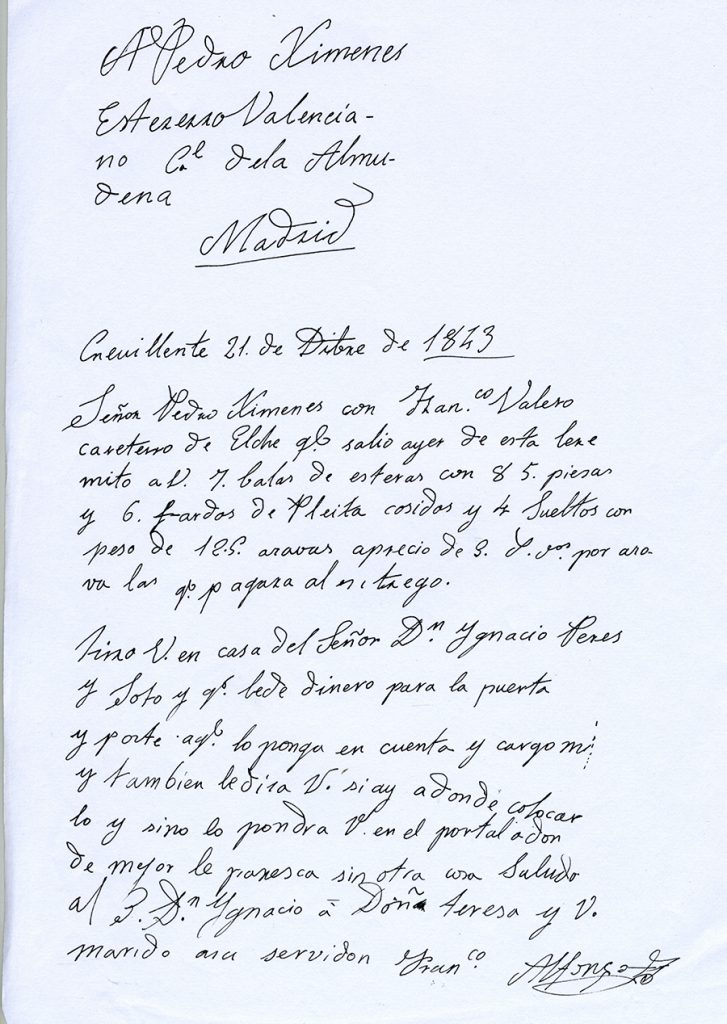 A Pedro Ximenes
Esterero Valencia-
no C.e dela Almu-
dena
Madrid
Crevillente 21. de Ditre de 1823
Señor Pedro Ximenes con Fran.co Valero
careterro de Elche q.e salio ayer de esta lere
mito a V. 7. balas de esteras con 85. piesas
y 6. fardos de Pleita cosidos y 4 Sueltos con
peso de 125. aravas aprecio de por ara
va las q.e pagara al nitrego.
V. en casa del Señor D.n Ygnacio Peres
y Soto y q.e lede dinero para la puerta
y porte aq.e lo ponga en cuenta y cargo mi
y tambien ledira V. siay adonde colocar
lo y sino lo pondra V. en el portal adon
de mejor le paresca sin otra cosa Saludo
al S. D.n Ygnacio à Doña teresa y V.
marido asu servidor Fran.co Alfonso